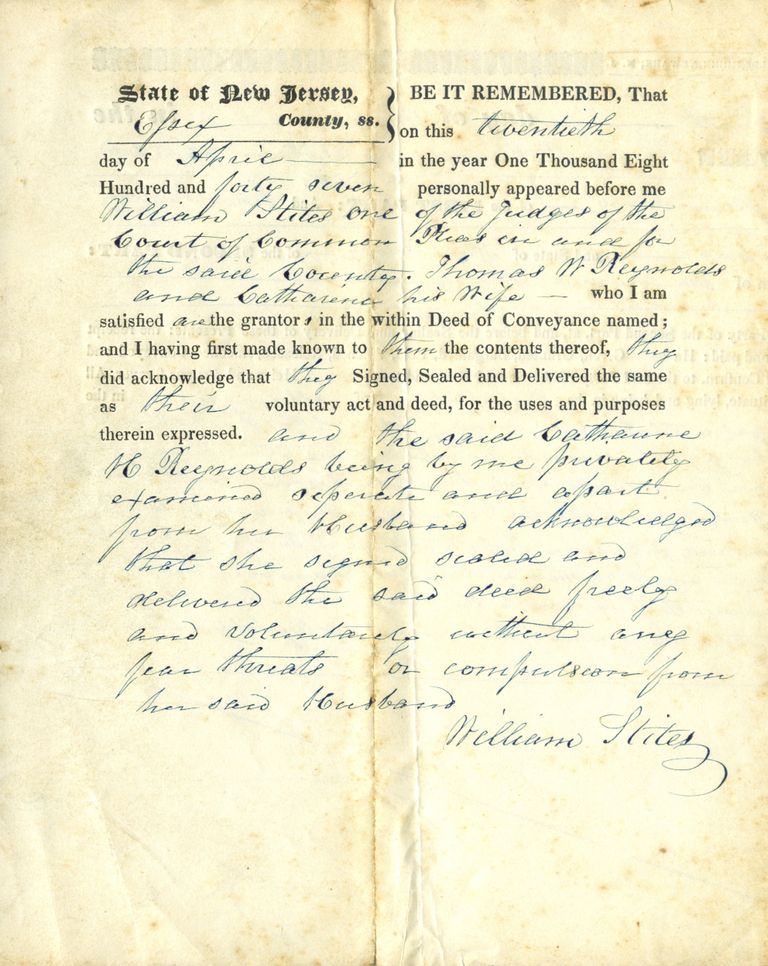 State of New Jersey, } BE IT REMEMBERED, That
Essex County, ss. on this twentieth
day of April in the year One Thousand Eight
Hundred and forty seven personally appeared before me
William Stites one of the Judges of the
Court of Common Pleas in and for
the said County. Thomas W Reynolds
and Catharine his Wife — who I am
satisfied are the grantors in the within Deed of Conveyance named;
and I having first made known to them the contents thereof, they
did acknowledge that they Signed, Sealed and Delivered the same
as their voluntary act and deed, for the uses and purposes
therein expressed. and the said Catharine
H Reynolds being by me privately
examined seperate and apart
from her Husband acknowledged
that she signed sealed and
delivered the said deed freely
and voluntarily without any
fear threats or compulsion from
her said Husband
William Stites